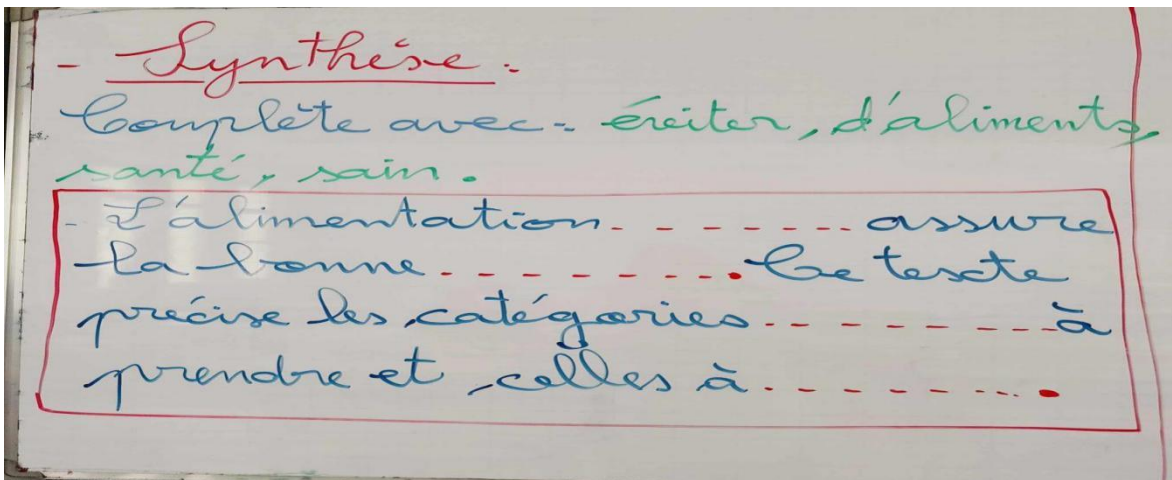 - Synthèse :
Complète avec : éviter, d'aliments,
santé, sain.
- L'alimentation - - - - - - - assure
la bonne - - - - - - - - . Ce texte
précise les catégories - - - - - - - à
prendre et celles à - - - - - - - .